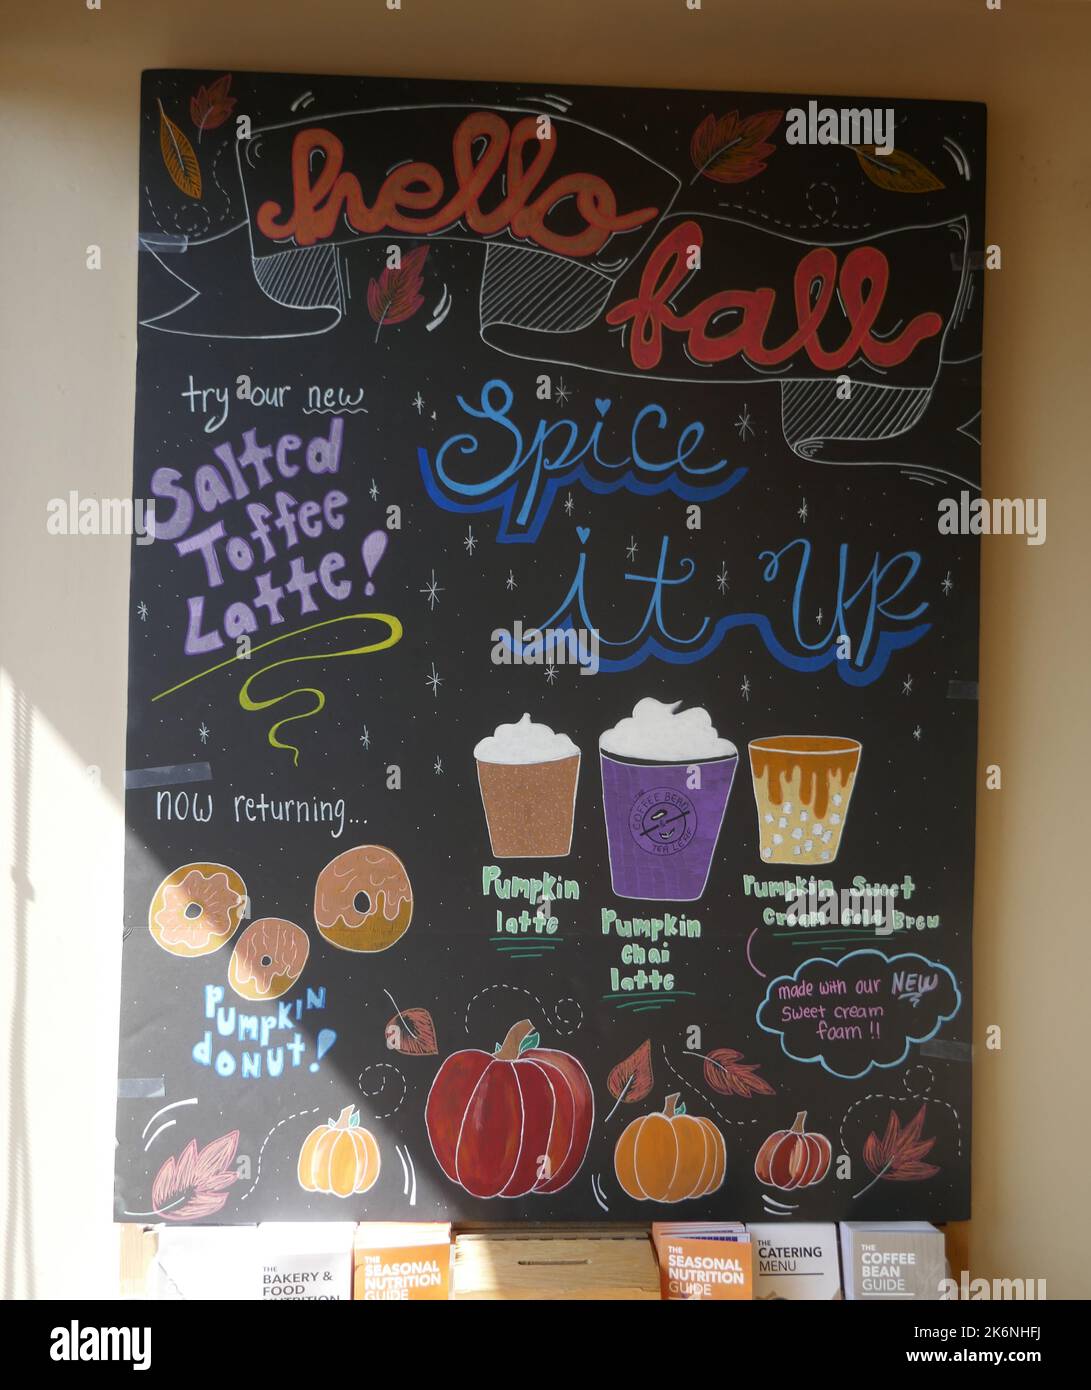 hello
fall
try our new
Salted
Toffee
Latte!
Spice
it up
now returning...
Pumpkin
donut!
THE
COFFEE BEAN
&
TEA LEAF
Pumpkin
latte
Pumpkin
chai
latte
Pumpkin Sweet
Cream Cold Brew
made with our NEW
sweet cream
foam !!
THE
BAKERY &
FOOD
NUTRITION
THE
SEASONAL
NUTRITION
GUIDE
THE
SEASONAL
NUTRITION
GUIDE
THE
CATERING
MENU
THE
COFFEE
BEAN
GUIDE
alamy
alamy
alamy
alamy
a
alamy
Image ID: 2K6NHFJ
www.alamy.com